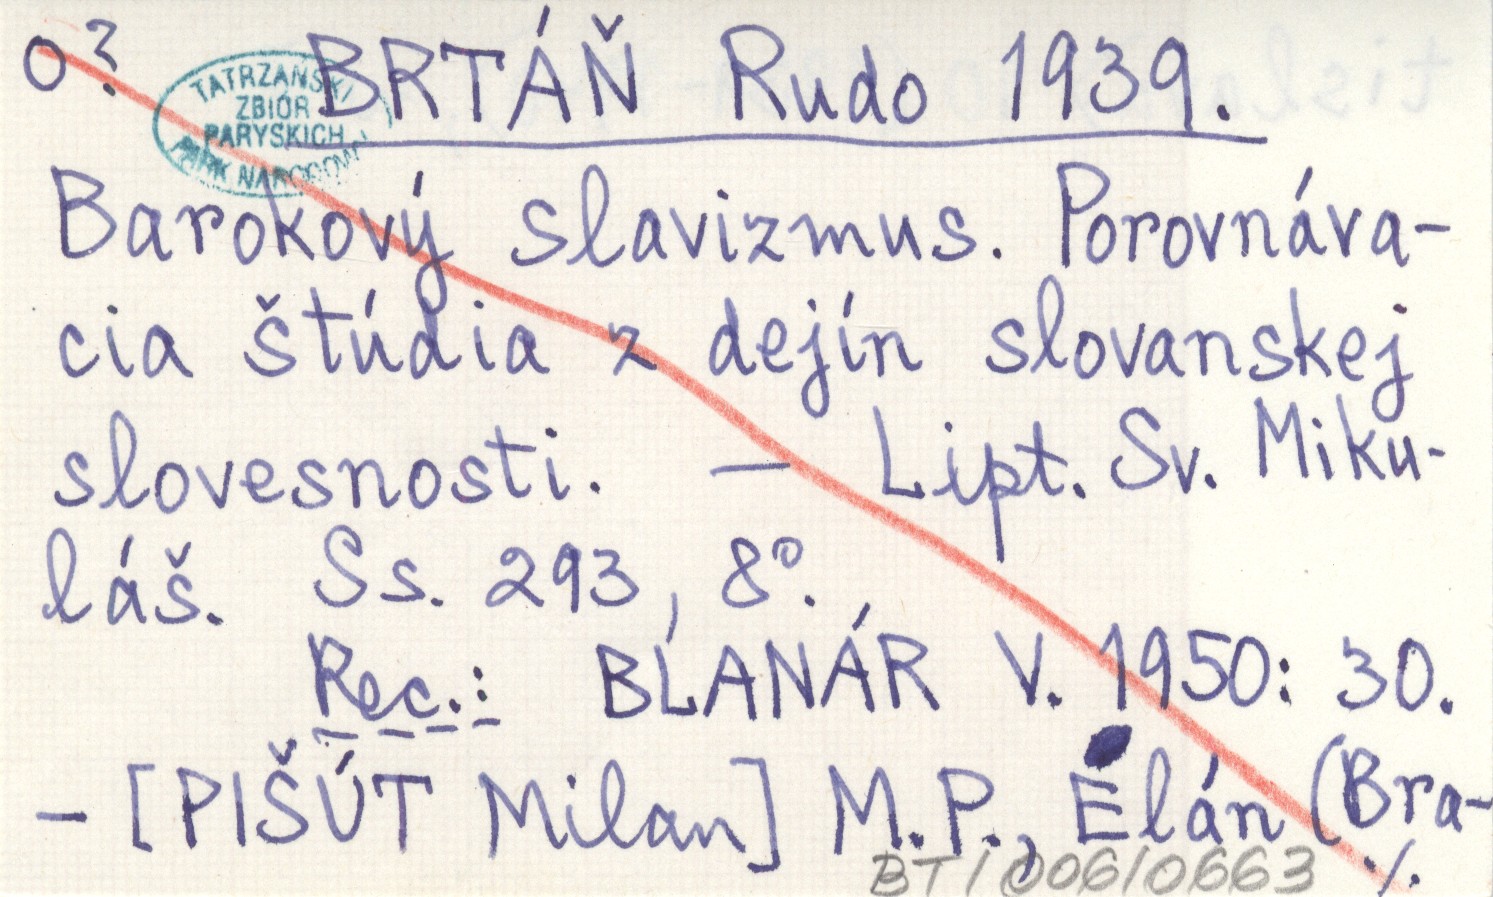 o?
TATRZAŃSKI
ZBIÓR
PARYSKICH
PARK NARODOWY
BRTÁŇ Rudo 1939.
Barokový slavizmus. Porovnáva-
cia štúdia z dejín slovanskej
slovesnosti. — Lipt. Sv. Miku-
láš. Ss. 293, 8º.
Rec.: BLANÁR V. 1950: 30.
– [PIŠÚT Milan] M.P., Elán (Bra-
BT/00610663
./.